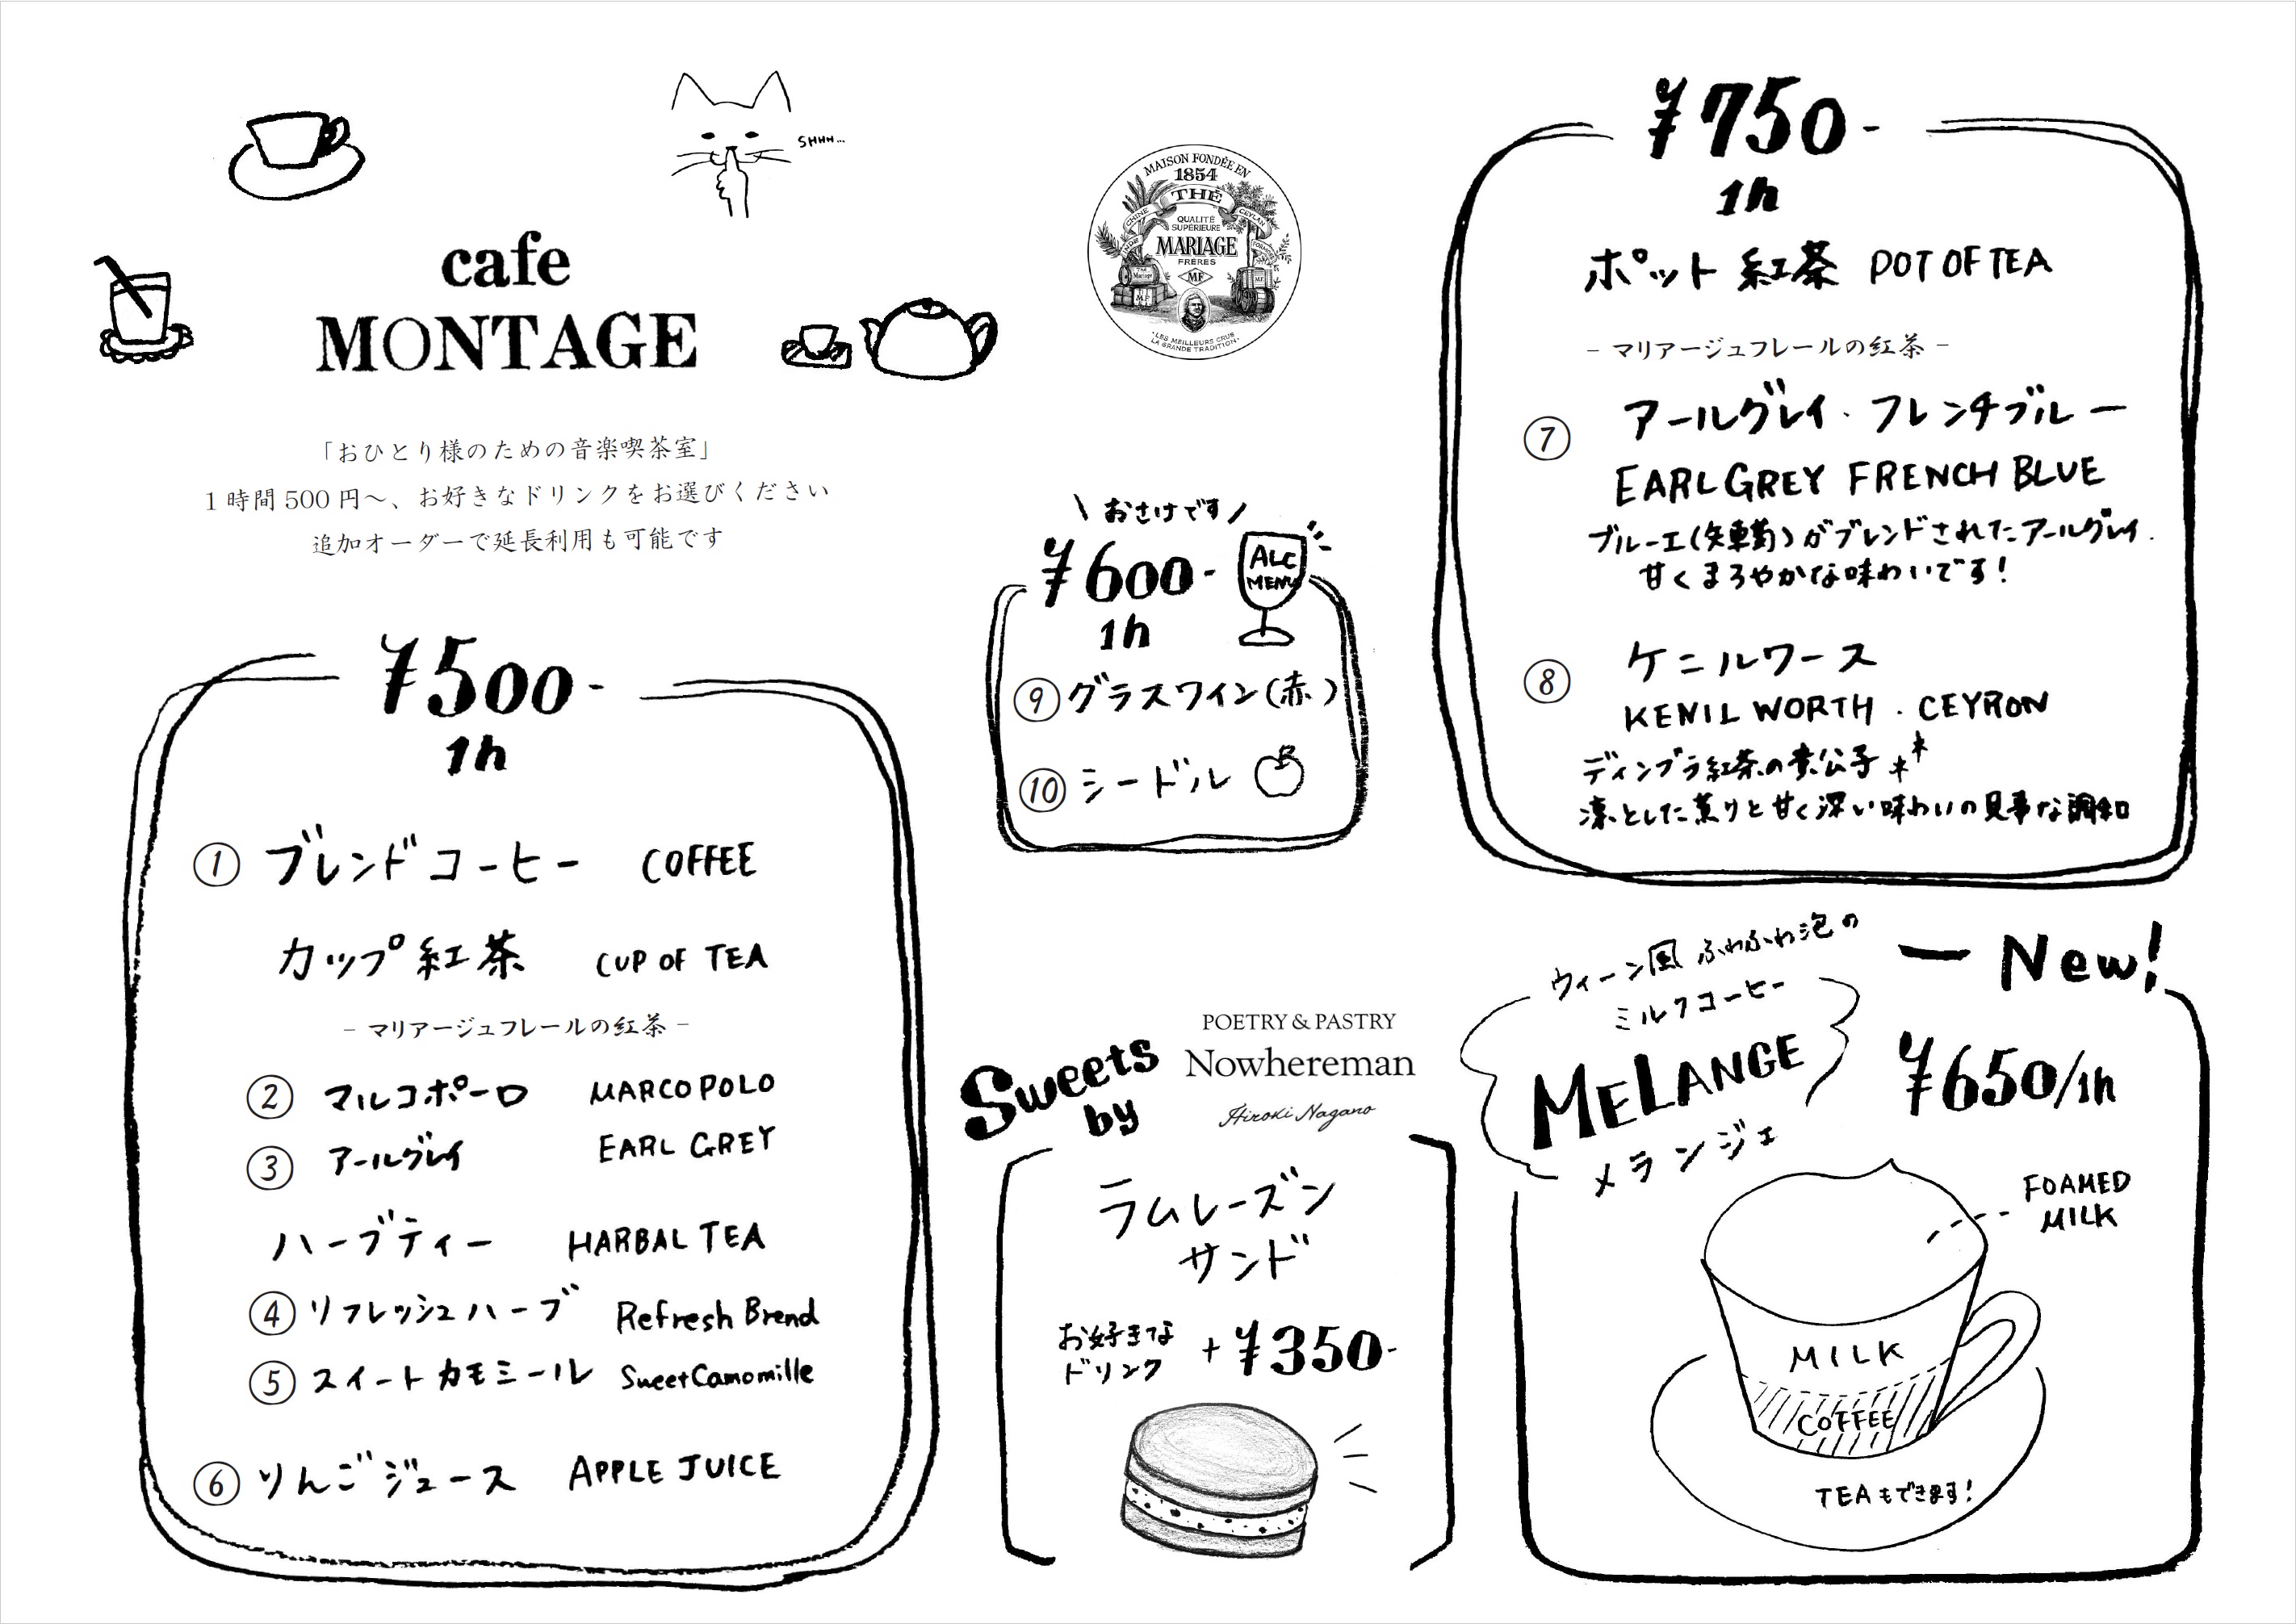 SHHH...
cafe
MONTAGE
「おひとり様のための音楽喫茶室」
1時間500円～、お好きなドリンクをお選びください
追加オーダーで延長利用も可能です
¥500-
1h
① ブレンドコーヒー COFFEE
カップ紅茶 CUP OF TEA
- マリアージュフレールの紅茶 -
② マルコポーロ MARCO POLO
③ アールグレイ EARL GREY
ハーブティー HARBAL TEA
④ リフレッシュハーブ Refresh Brend
⑤ スイートカモミール Sweet Camomille
⑥ りんごジュース APPLE JUICE
MAISON FONDÉE EN
1854
THÉ
CHINE
CEYLAN
QUALITÉ
SUPÉRIEURE
MARIAGE
FRÈRES
MF
·LES MEILLEURS CRUS·
LA GRANDE TRADITION·
\ おさけです /
¥600-
ALC
MENU
1h
⑨ グラスワイン(赤)
⑩ シードル
Sweets
by
POETRY & PASTRY
Nowhereman
Hiroki Nagano
ラムレーズン
サンド
お好きな
ドリンク
+ ¥350-
¥750-
1h
ポット紅茶 POT OF TEA
- マリアージュフレールの紅茶 -
⑦ アールグレイ・フレンチブルー
EARL GREY FRENCH BLUE
ブルーエ(矢車菊)がブレンドされたアールグレイ.
甘くまろやかな味わいです!
⑧ ケニルワース
KENIL WORTH . CEYRON
ディンブラ紅茶の貴公子**
凛とした薫りと甘く深い味わいの見事な調和
ウィーン風 ふわふわ泡の
ミルクコーヒー
MELANGE
メランジェ
— New!
¥650/1h
FOAMED
MILK
MILK
COFFEE
TEAもできます!